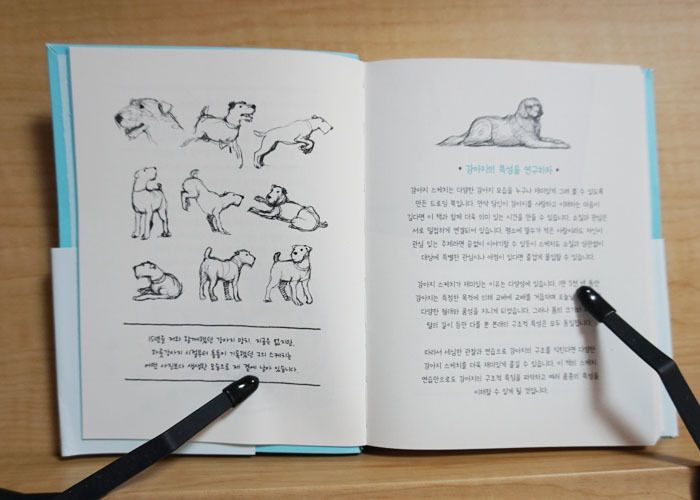 15년을 저와 함께했던 강아지 망치. 지금은 없지만,
하룻강아지 시절부터 틈틈이 기록했던 그의 스케치는
어떤 사진보다 생생한 모습으로 제 곁에 남아 있습니다.
• 강아지의 특성을 연구하자 •
강아지 스케치는 다양한 강아지 모습을 누구나 재미있게 그려 볼 수 있도록
만든 드로잉 북입니다. 만약 당신이 강아지를 사랑하고 이해하는 마음이
깊다면 이 책과 함께 더욱 의미 있는 시간을 만들 수 있습니다. 소질과 관심은
서로 밀접하게 연결되어 있습니다. 평소에 말수가 적은 사람이라도 자신이
관심 있는 주제라면 끊임없이 이야기할 수 있듯이 스케치도 소질과 상관없이
대상에 특별한 관심이나 애정이 있다면 즐겁게 몰입할 수 있습니다.
강아지 스케치가 재미있는 이유는 다양성에 있습니다. 1만 5천 년 동안
강아지는 특정한 목적에 의해 교배에 교배를 거듭하며 오늘날
다양한 형태와 품성을 지니게 되었습니다. 그러나 몸의 크기와
털의 길이 등만 다를 뿐 본래의 구조적 특성은 모두 동일합니다.
따라서 세심한 관찰과 연습으로 강아지의 구조를 익힌다면 다양한
강아지 스케치를 더욱 재미있게 즐길 수 있습니다. 이 책의 스케치
연습만으로도 강아지의 구조적 특징을 파악하고 여러 품종의 특성을
이해할 수 있게 될 것입니다.